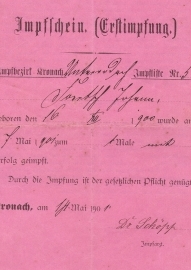 Impfschein. (Erstimpfung.)
Impfbezirk Kronach, Unterrodach Impfliste Nr. 5
Johann,
geboren den 16 1900 wurde am
7 Mai 1901 zum 1 Male mit
Erfolg geimpft.
Durch die Impfung ist der gesetzlichen Pflicht genügt
Kronach, am 14 Mai 1901
Dr Schöpp
Impfarzt.